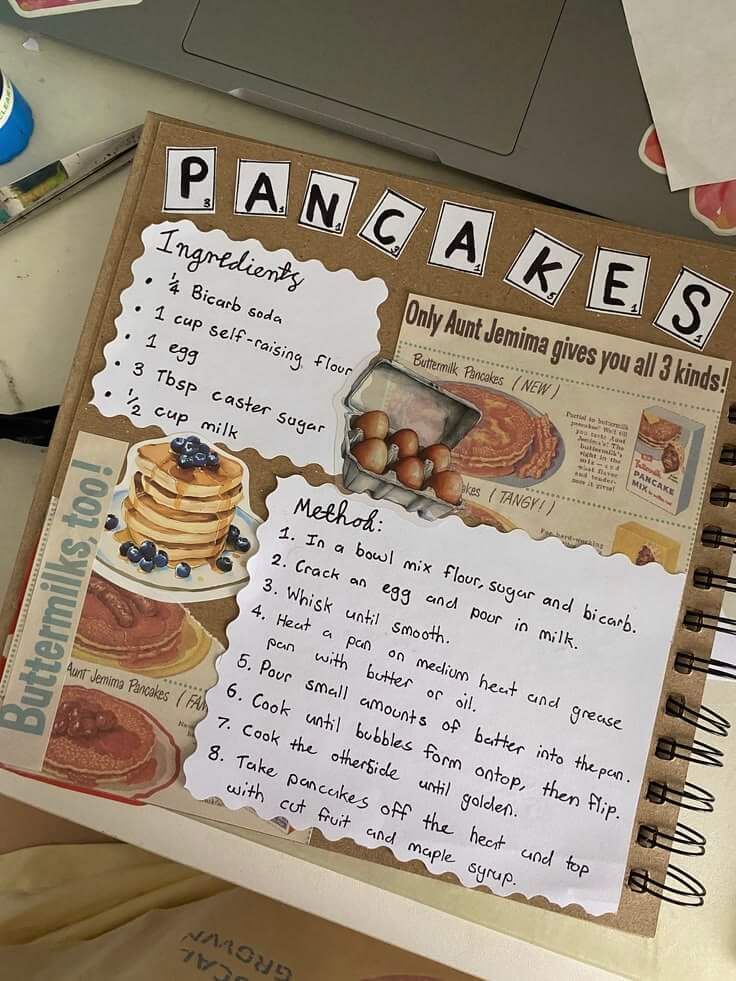 PANCAKES
Ingredients
• 1/4 Bicarb soda
• 1 cup self-raising flour
• 1 egg
• 3 Tbsp caster sugar
• 1/2 cup milk
Only Aunt Jemima gives you all 3 kinds!
Buttermilk Pancakes (NEW)
Partial to buttermilk
pancakes? Well
PANCAKE
MIX
akes (TANGY!)
For hard-working
Buttermilks, too!
Aunt Jemima Pancakes (FAM
Method:
1. In a bowl mix flour, sugar and bicarb.
2. Crack an egg and pour in milk.
3. Whisk until smooth.
4. Heat a pan on medium heat and grease
pan with butter or oil.
5. Pour small amounts of batter into the pan.
6. Cook until bubbles form ontop, then flip.
7. Cook the otherside until golden.
8. Take pancakes off the heat and top
with cut fruit and maple syrup.
CAL
GROWN
CLEA